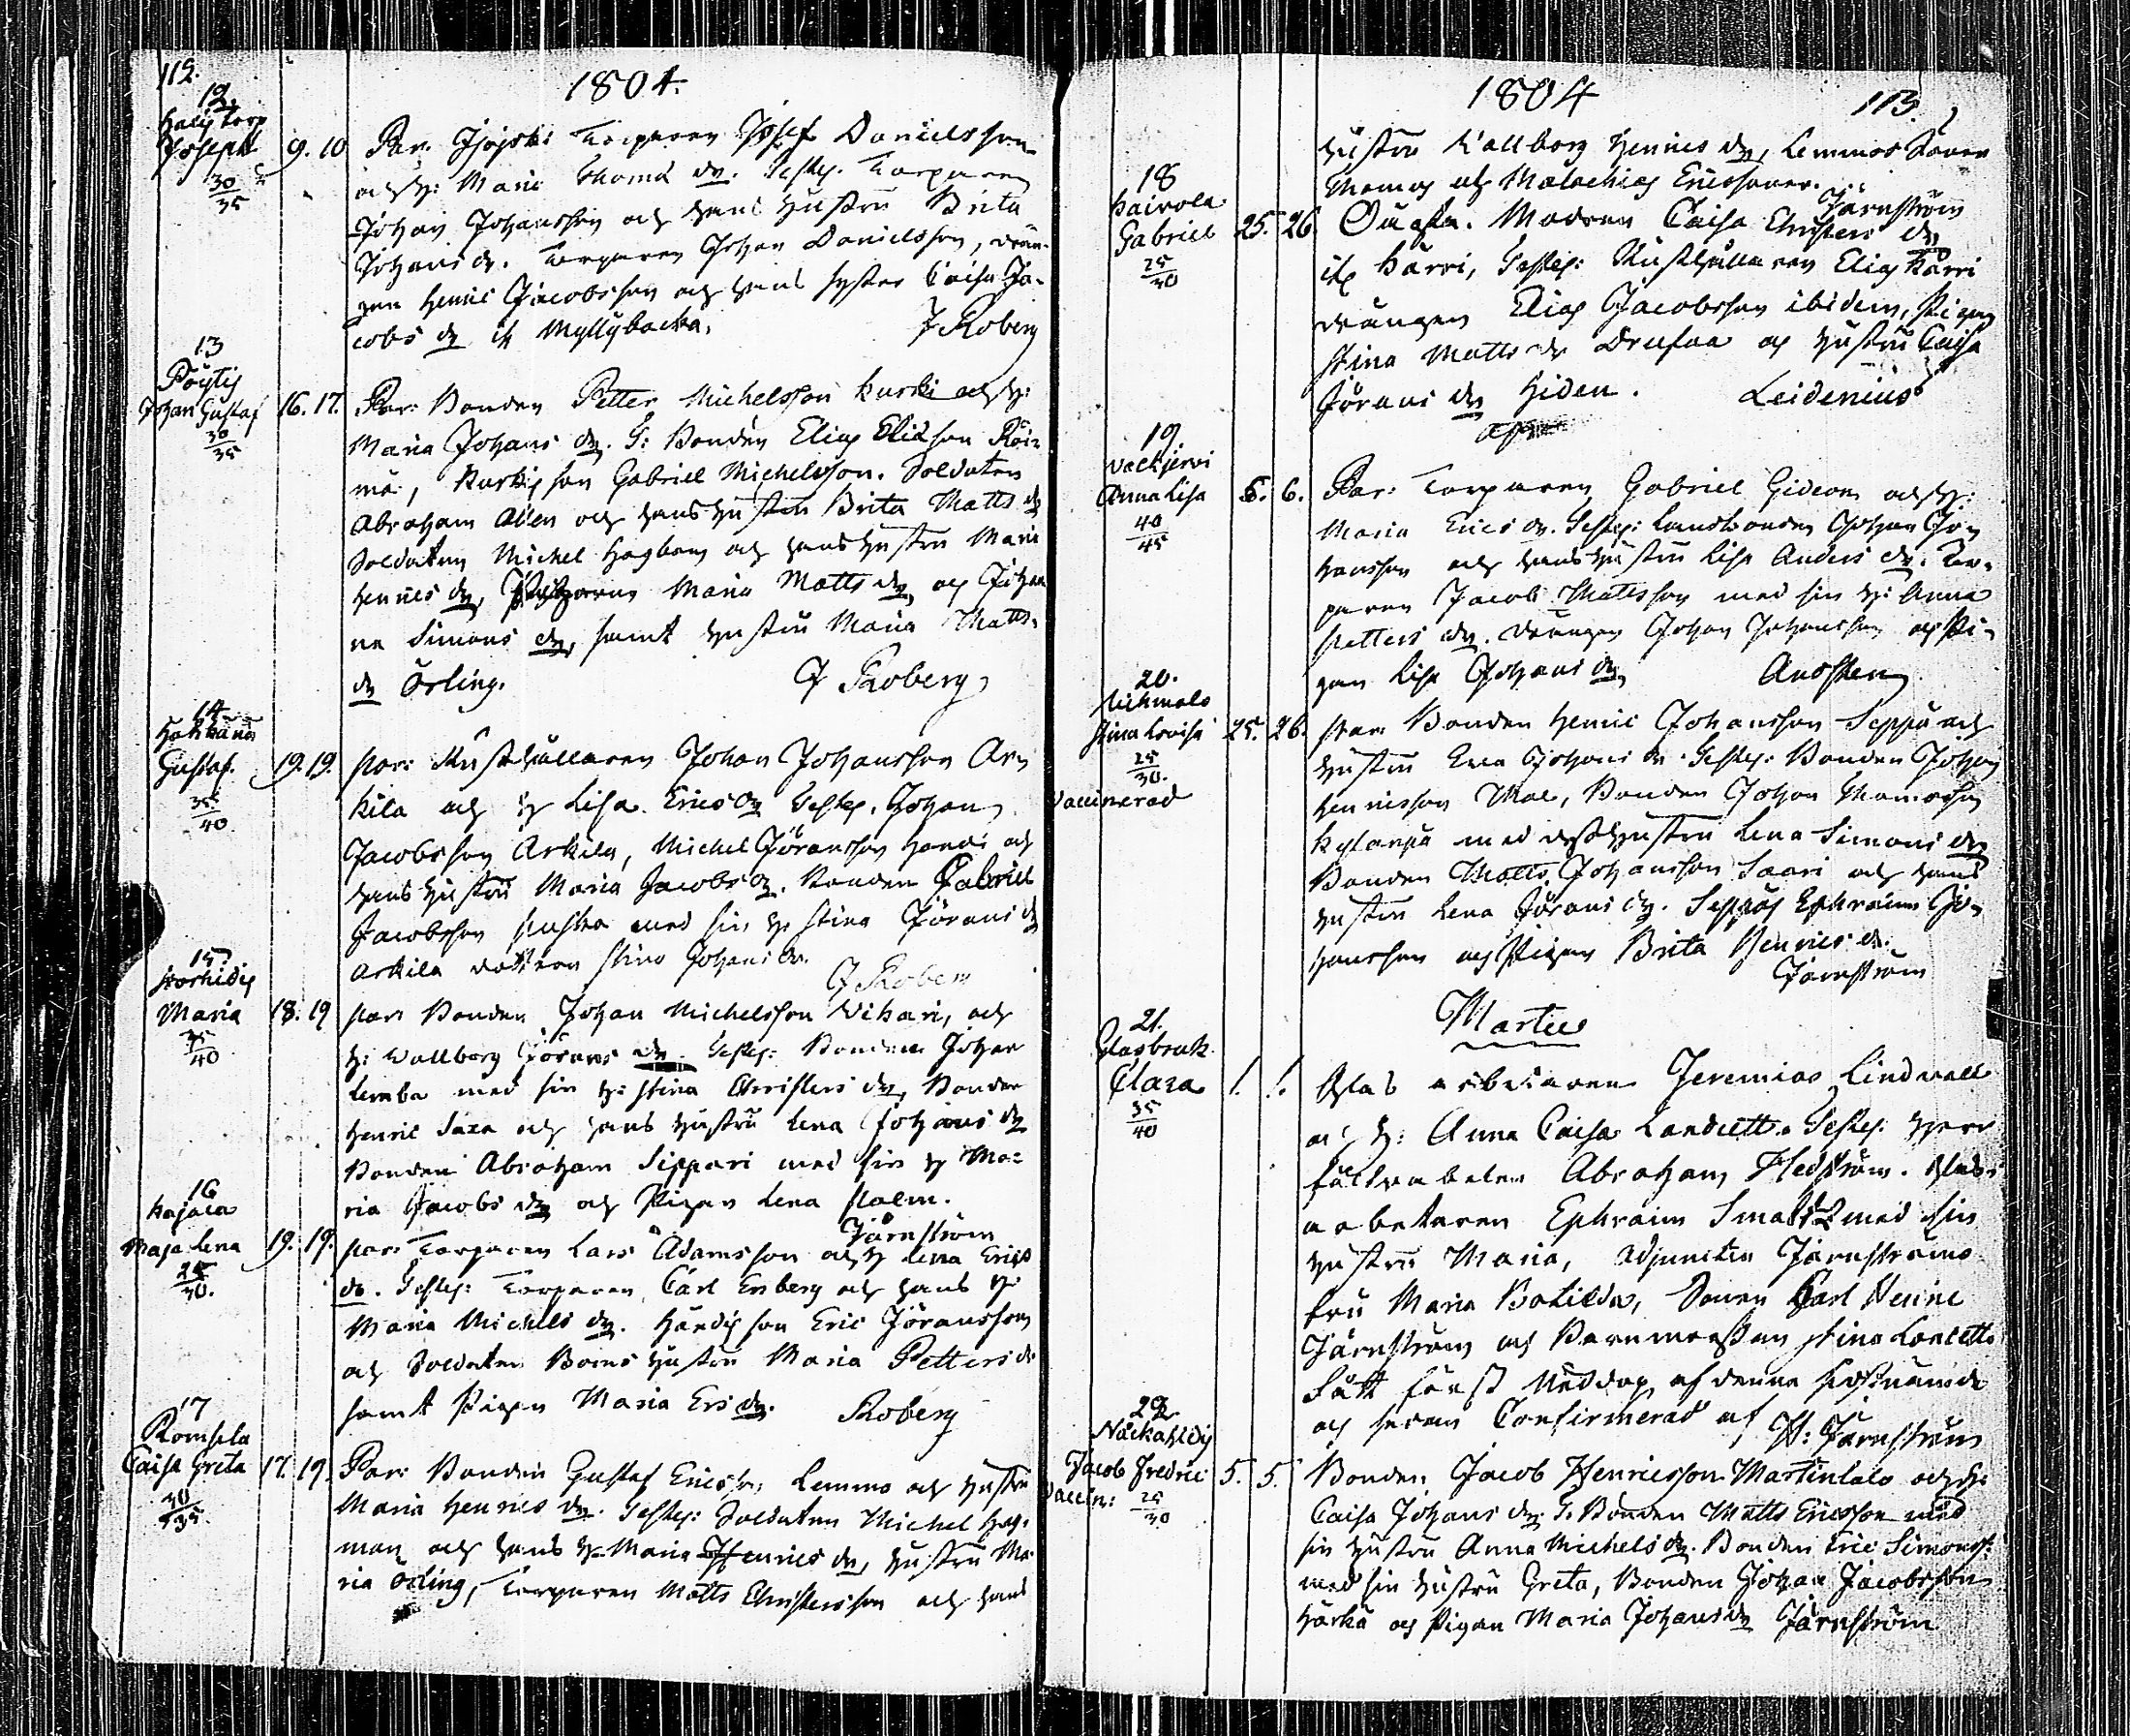 112.
1804.
12.
Joseph 9. 10
30
35
Par. Torparen Josef Danielsson
och h: Maria Thomæ dr. Testes. Torparen
Johan Johansson och hans hustru Brita
Johans dr. Torparen Johan Danielsson, drän-
gen Henric Jacobsson och hans syster Caisa Ja-
cobs dr Myllÿbacka.
J Roberg
13
Pöÿtis
Johan Gustaf 16. 17.
30
35
Par: Bonden Petter Michelsson Kurki och h:
Maria Johans dr. T: Bonden Elias Elisson
Kurkis son Gabriel Michelsson. Soldaten
Abraham Alen och hans hustru Brita Matts dr
Soldaten Michel Hagberg och hans hustru Maria
Henrics dr, Pigorna Maria Matts dr och Johan
na Simons dr, samt hustru Maria Matts
dr Örling.
J Roberg
14
Gustaf 19. 19.
35
40
par: Rusthållaren Johan Johansson Ar
kila och h Lisa Erics dr Testes. Johan
Jacobsson Arkila, Michel Göransson och
hans hustru Maria Jacobs dr. Bonden Gabriel
Jacobsson med sin h Stina Jörans dr
Arkila dottren Stina Johans dr.
J Roberg
15
Maria 18. 19
35
40
par: Bonden Johan Michelsson Vihari, och
h: Wallborg Jörans dr. Testes: Bonden Johan
Lemba med sin h: Stina Christers dr, Bonden
Henric Saxa och hans hustru Lena Johans dr
Bonden Abraham Sippari med sin h Ma-
ria Jacobs dr och Pigan Lena Holm.
Järnström
16
Kajala
Maja Lena 19. 19.
25
30.
par: Torparen Lars Adamsson och h Lena Erics
dr. Testes: Torparen Carl Enberg och hans h:
Maria Michels dr. son Eric Jöransson
och Soldaten hustru Maria Petters dr
samt Pigan Maria Ers dr.
Roberg
17
Caisa Greta 17. 19.
30
35
Par: Bonden Gustaf Ericsson Lemmo och hustru
Maria Henrics dr. Testes: Soldaten Michel Hag-
man och hans h Maria Henrics dr, hustru Ma
ria Örling, Torparen Matts Christersson och hans
1804
113.
hustru Wallborg Henrics dr, Lemmos Söner
Thomas och Malachias Ericssöner.
Järnström
18
Gabriel 25. 26.
25
30
Oäkta. Modren Caisa Christers dr
Härri, Testes: Rusthållaren Elias Härri
drängen Elias Jacobsson ibidem, Pigan
Stina Matts dr och hustru Caisa
Jörans dr Hiden.
Leidenius
19.
Anna Lisa 5. 6.
40
45
Par: Torparen Gabriel Gideons och h:
Maria Erics dr. Testes: Landbonden Johan Jo
hansson och hans hustru Lisa Anders dr. Tor-
paren Jacob Mattsson med sin h: Anna
Petters dr. Drängen Johan Johansson och Pi-
gan Lisa Johans dr
20.
Stina Lovisa 25. 26.
25
30.
Vaccinerad
par: Bonden Henric Johansson Seppä och
hustru Eva Johans dr. Testes: Bonden Johan
Henricsson Bonden Johan Thomasson
med dess hustru Lena Simons dr
Bonden Matts Johansson Saari och hans
hustru Lena Jörans dr. Seppäs Ephraim Jo
hansson och Pigan Brita Henrics dr.
Järnström
Martius
21.
Glasbruk
Clara 1. 1.
35
40
Glas arbetaren Jeremias Lindwall
och h: Anna Caisa Landett. Testes: Herr
Fältwäbelen Abraham Hedström. Glas
arbetaren Ephraim med sin
hustru Maria, Adjuncten Järnströms
fru Maria Botilda, Sonen Carl Henric
Järnström och Barnmorskan Stina
Fått först Nöddop af denna sistnämde
och sedan Confirmerad af H: Järnström
22
Jacob Fredric 5. 5.
Vaccin: 25
30
Bonden Jacob Henricsson Martinlalo och h:
Caisa Johans dr. T. Bonden Matts Ericsson med
sin hustru Anna Michels dr. Bonden Eric Simonss:
med sin hustru Greta, Bonden Johan Jacobsson
Härkä och Pigan Maria Johans dr
Järnström